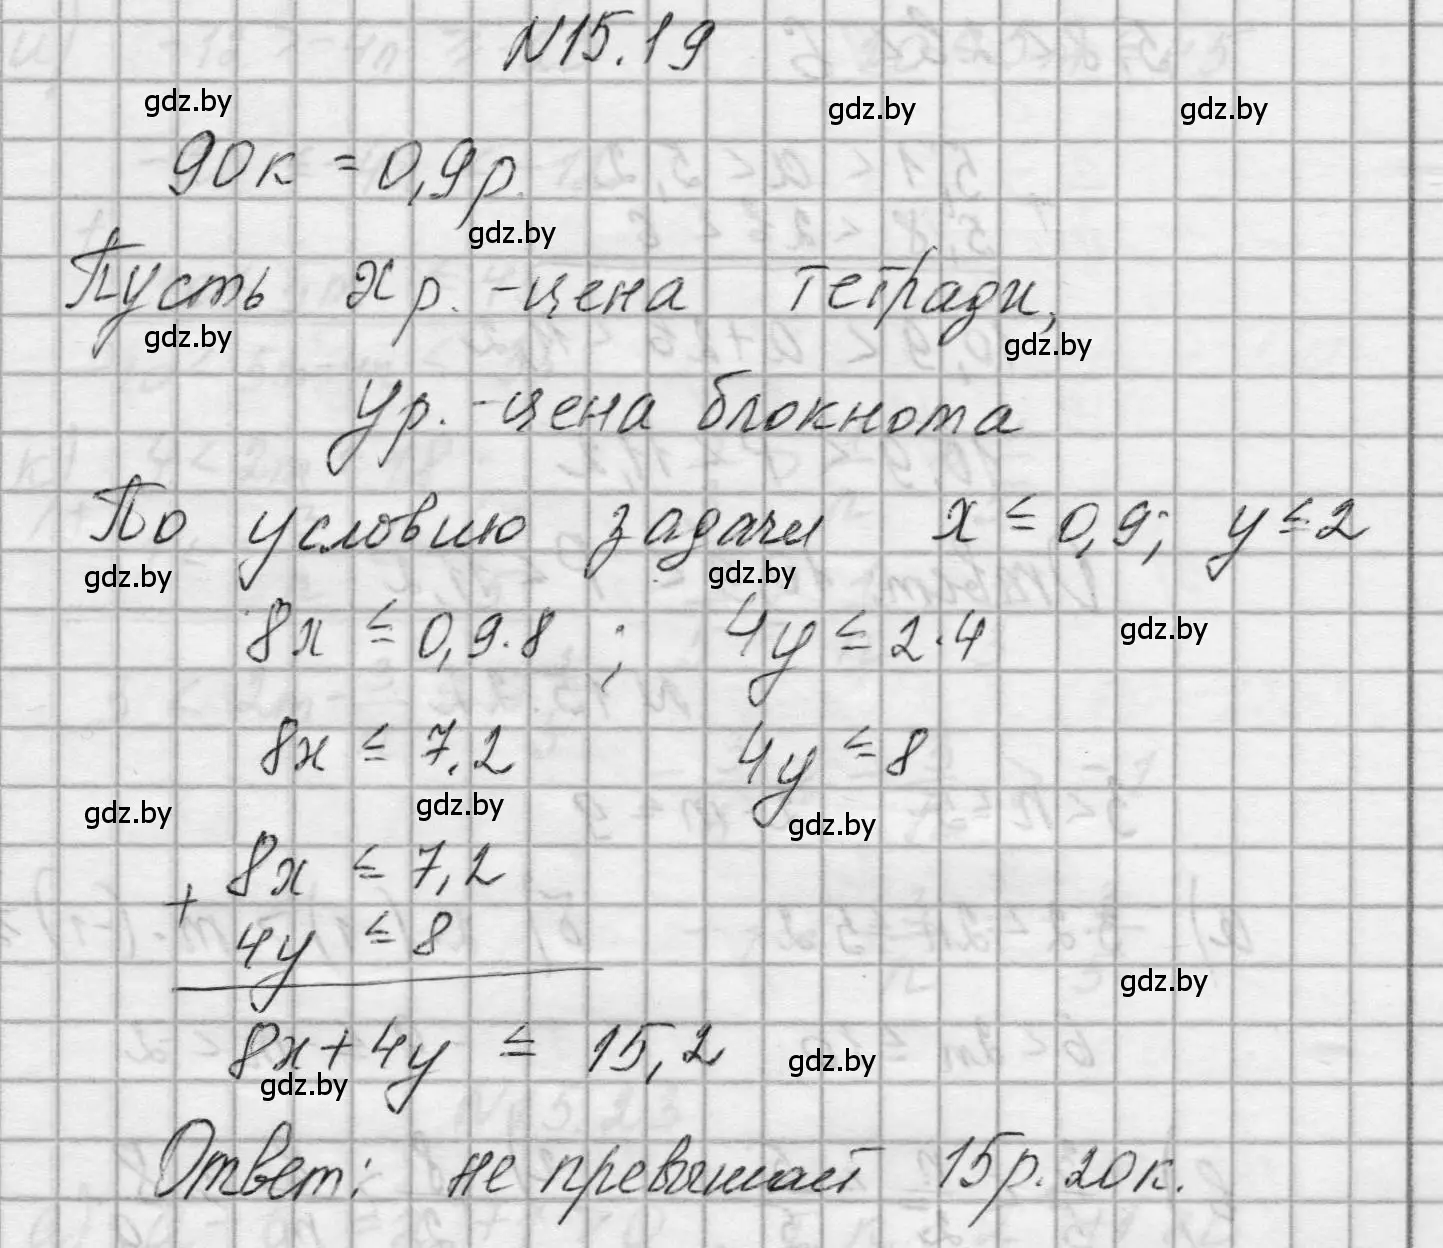 N15.19
gdz.by gdz.by gdz.by
90к = 0,9р.
gdz.by
Пусть x р. - цена тетради,
gdz.by gdz.by
y р. - цена блокнота
По условию задачи x ≤ 0,9; y ≤ 2
gdz.by gdz.by
8x ≤ 0,9·8 ; 4y ≤ 2·4
gdz.by
8x ≤ 7,2 4y ≤ 8
gdz.by gdz.by gdz.by
8x ≤ 7,2
+
4y ≤ 8
gdz.by
8x + 4y ≤ 15,2
gdz.by gdz.by
Ответ: не превышает 15р. 20к.